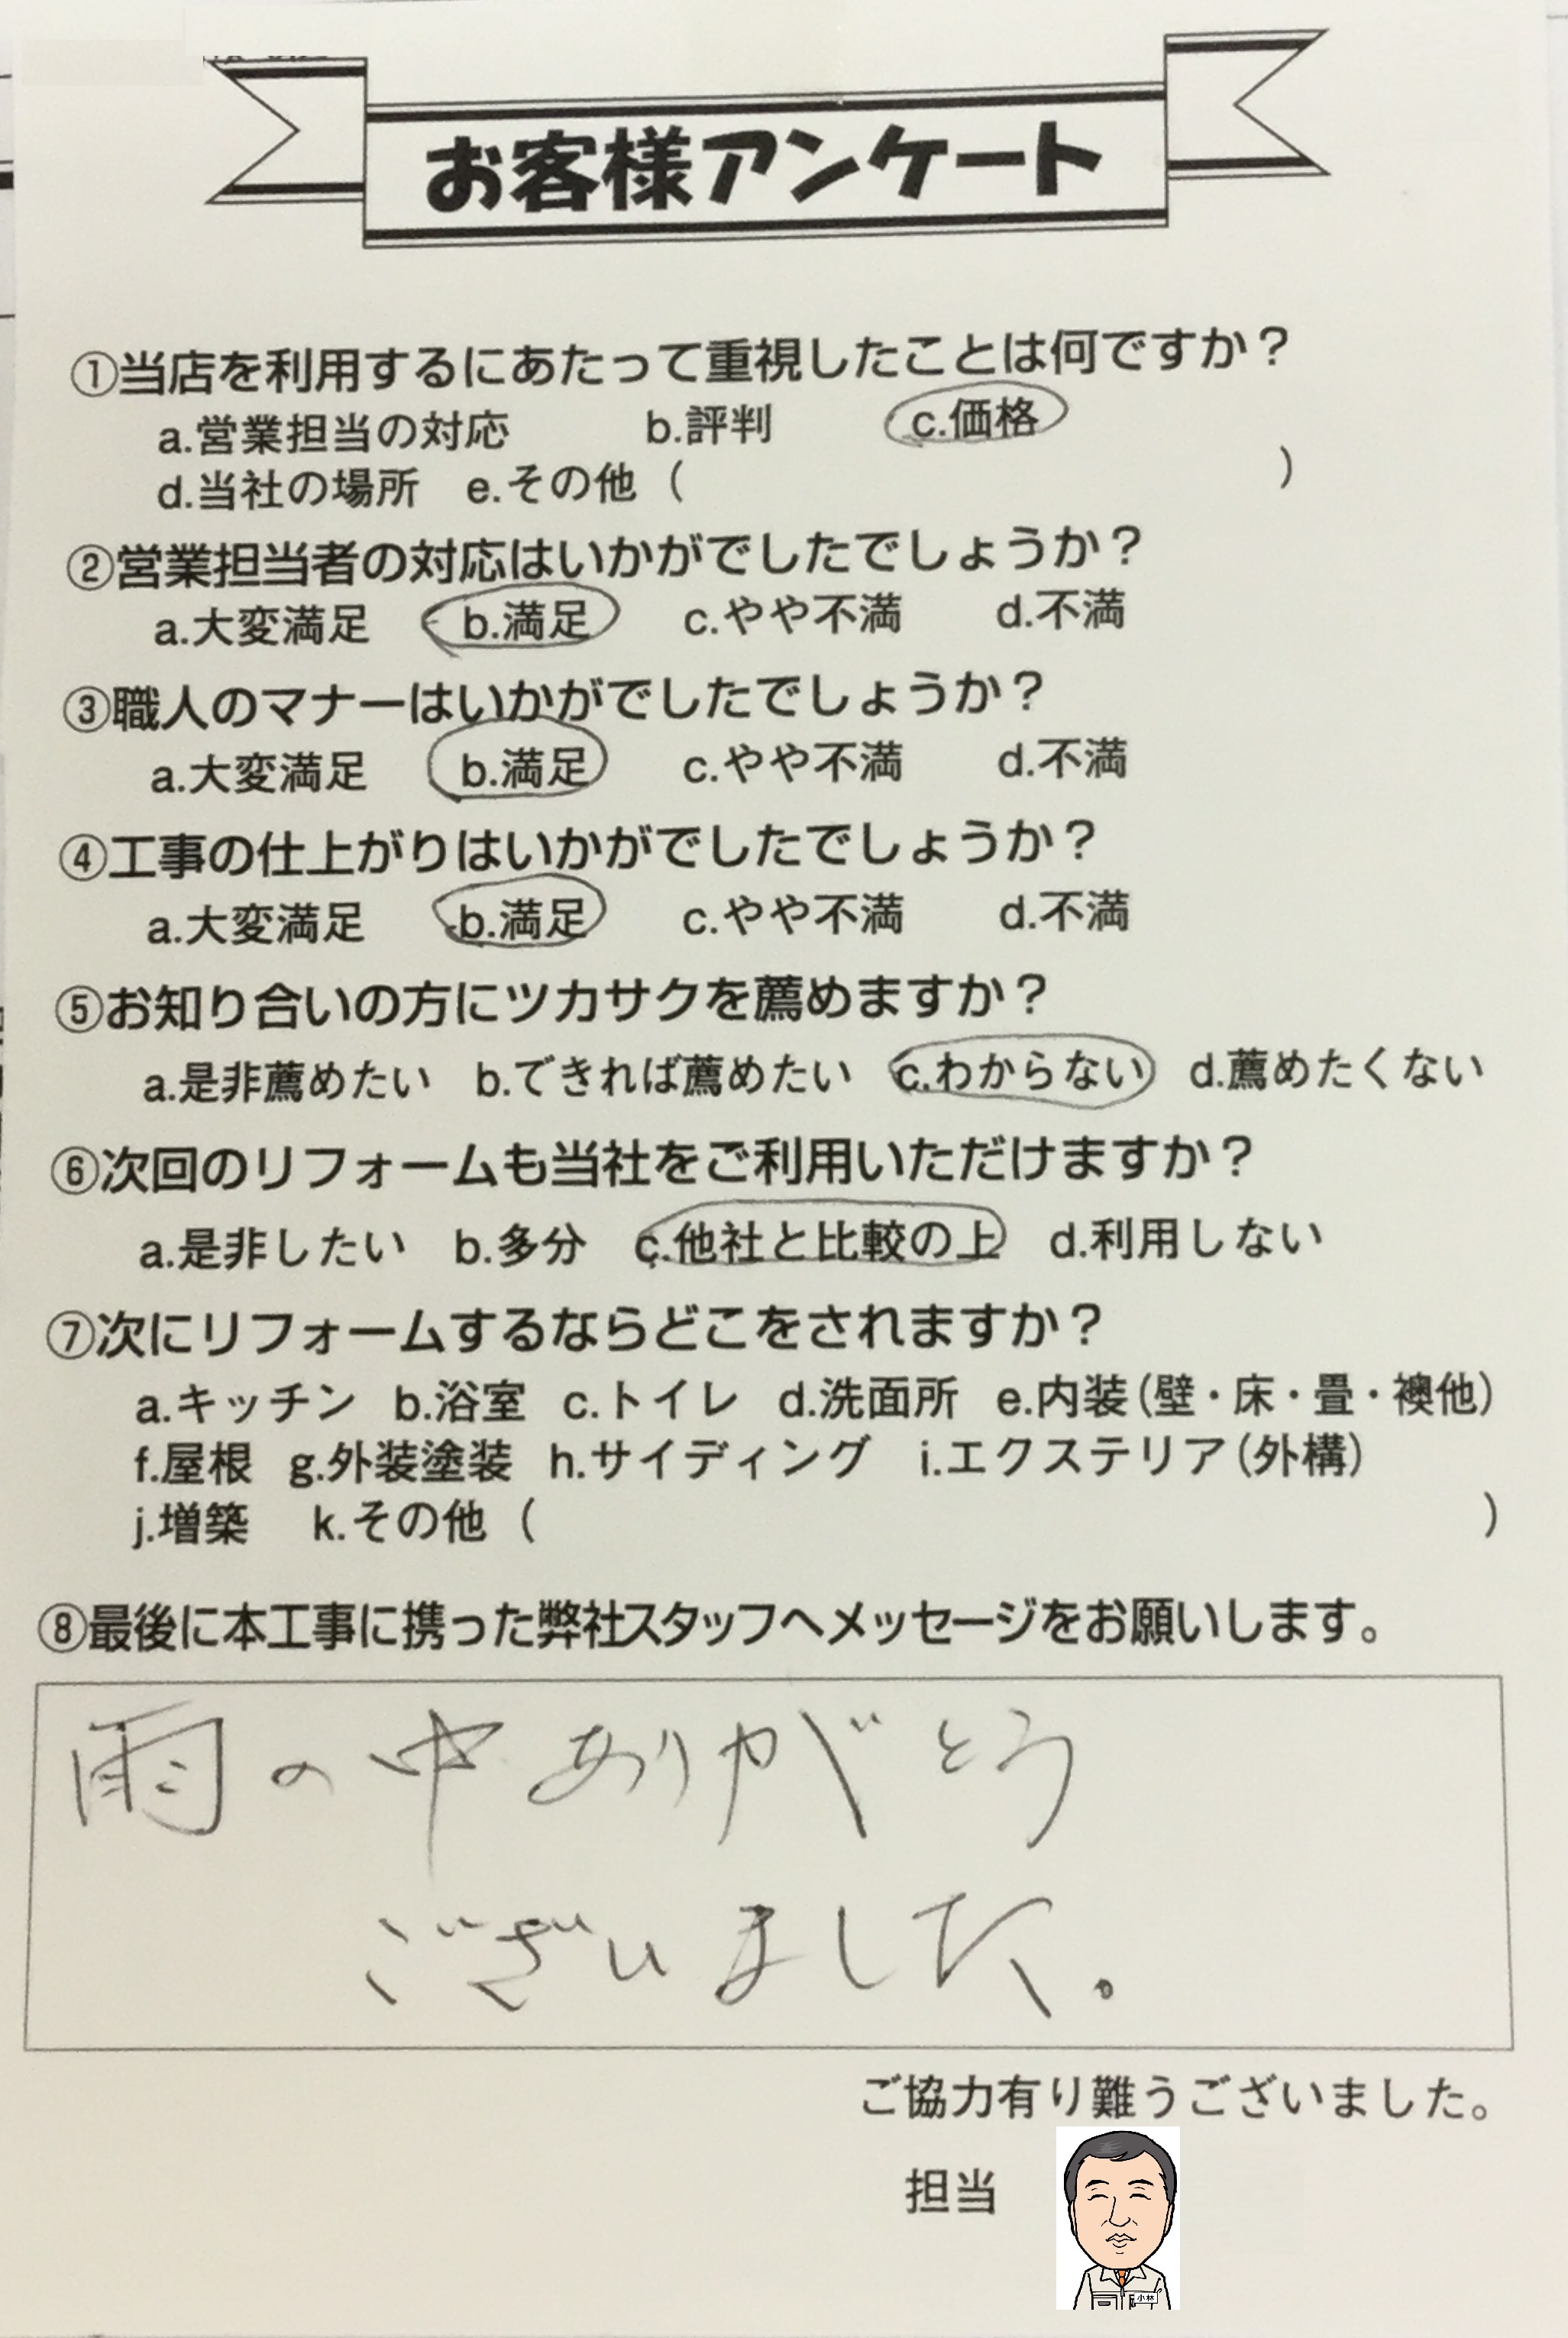 お客様アンケート
①当店を利用するにあたって重視したことは何ですか？
a.営業担当の対応 b.評判 c.価格
d.当社の場所 e.その他（ ）
②営業担当者の対応はいかがでしたでしょうか？
a.大変満足 b.満足 c.やや不満 d.不満
③職人のマナーはいかがでしたでしょうか？
a.大変満足 b.満足 c.やや不満 d.不満
④工事の仕上がりはいかがでしたでしょうか？
a.大変満足 b.満足 c.やや不満 d.不満
⑤お知り合いの方にツカサクを薦めますか？
a.是非薦めたい b.できれば薦めたい c.わからない d.薦めたくない
⑥次回のリフォームも当社をご利用いただけますか？
a.是非したい b.多分 c.他社と比較の上 d.利用しない
⑦次にリフォームするならどこをされますか？
a.キッチン b.浴室 c.トイレ d.洗面所 e.内装（壁・床・畳・襖他）
f.屋根 g.外装塗装 h.サイディング i.エクステリア（外構）
j.増築 k.その他（ ）
⑧最後に本工事に携った弊社スタッフへメッセージをお願いします。
雨の中ありがとう
ございました。
ご協力有り難うございました。
担当
小林